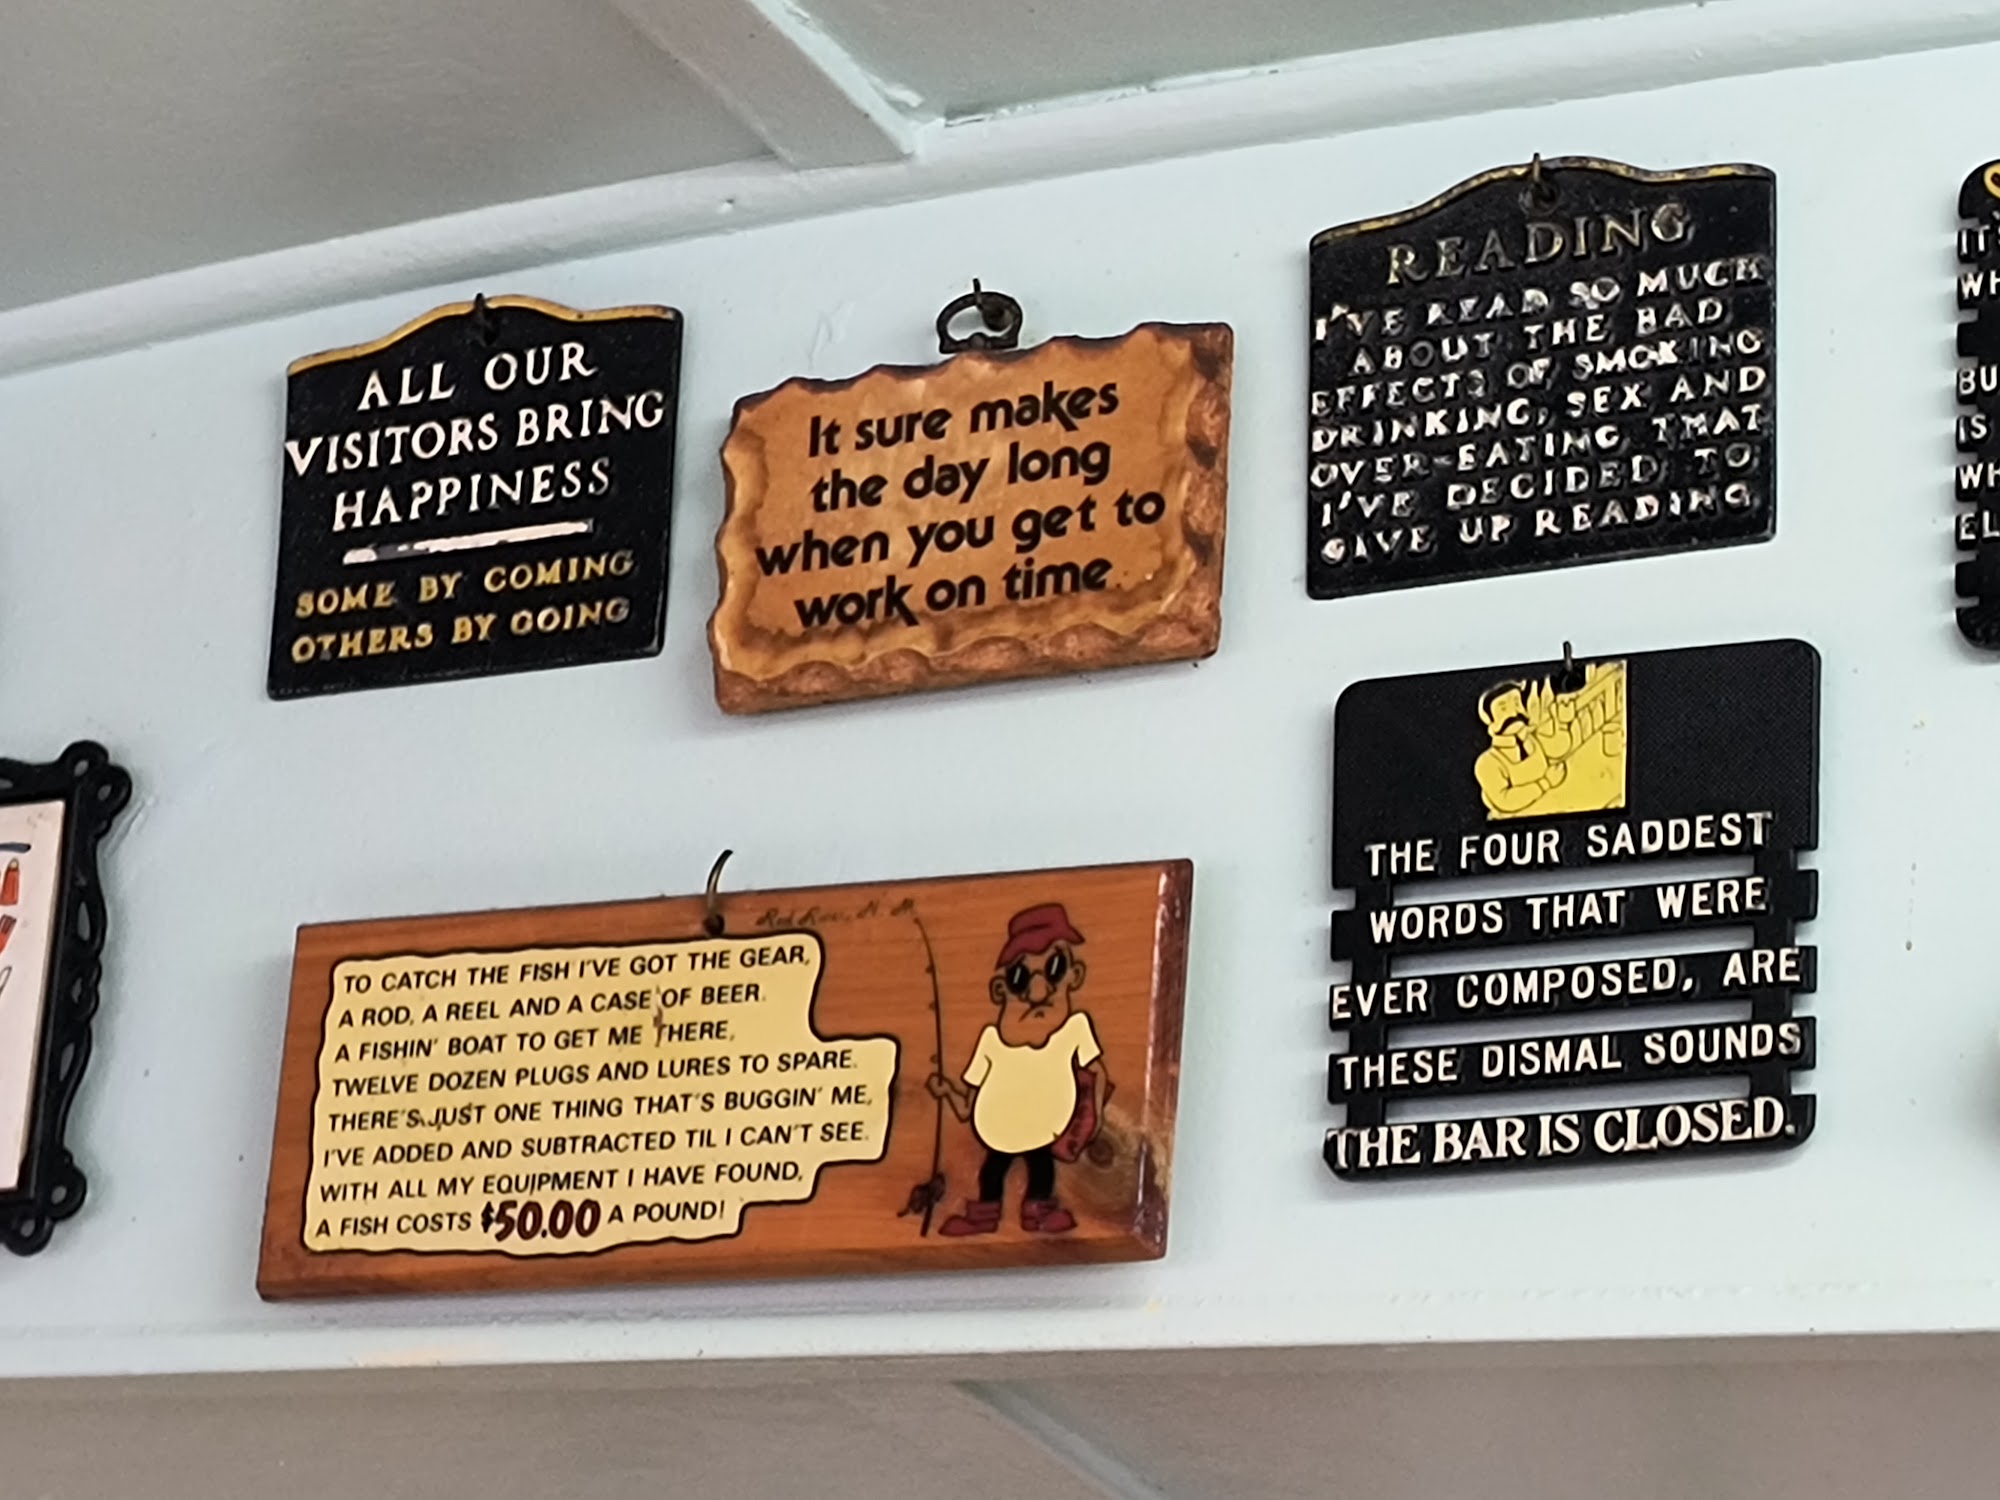 ALL OUR
VISITORS BRING
HAPPINESS
SOME BY COMING
OTHERS BY GOING
It sure makes
the day long
when you get to
work on time.
READING
I'VE READ SO MUCH
ABOUT THE BAD
EFFECTS OF SMOKING
DRINKING, SEX AND
OVER-EATING THAT
I'VE DECIDED TO
GIVE UP READING
TO CATCH THE FISH I'VE GOT THE GEAR,
A ROD, A REEL AND A CASE OF BEER.
A FISHIN' BOAT TO GET ME THERE,
TWELVE DOZEN PLUGS AND LURES TO SPARE.
THERE'S JUST ONE THING THAT'S BUGGIN' ME,
I'VE ADDED AND SUBTRACTED TIL I CAN'T SEE.
WITH ALL MY EQUIPMENT I HAVE FOUND,
A FISH COSTS $50.00 A POUND!
THE FOUR SADDEST
WORDS THAT WERE
EVER COMPOSED, ARE
THESE DISMAL SOUNDS
THE BAR IS CLOSED.
IS